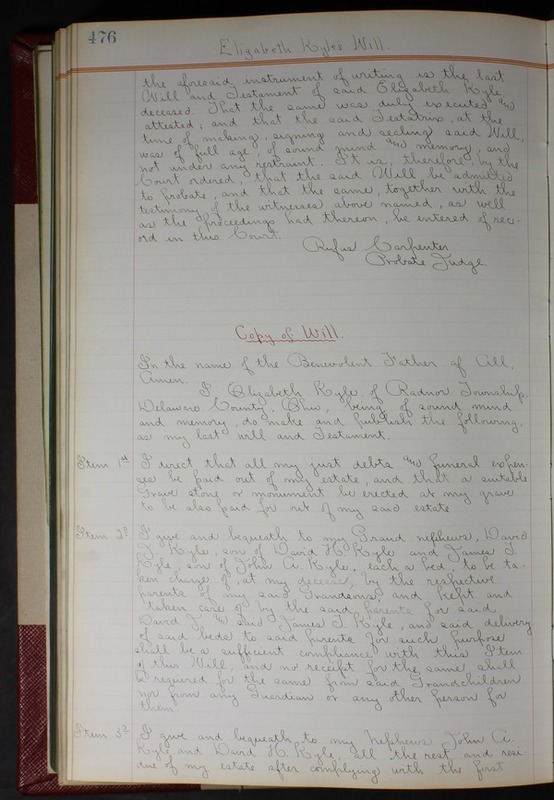 476
Elizabeth Kyle's Will.
the aforesaid instrument of writing is the last
Will and Testament of said Elizabeth Kyle,
deceased. That the same was duly executed and
attested; and that the said Testatrix, at the
time of making, signing and sealing said Will,
was of full age, of sound mind and memory, and
not under any restraint. It is, therefore, by the
Court ordered, that the said Will be admitted
to probate; and that the same, together with the
testimony of the witnesses above named, as well
as the proceedings had thereon, be entered of rec-
ord in this Court.
Rufus Carpenter
Probate Judge
Copy of Will.
In the name of the Benevolent Father of All,
Amen.
I Elizabeth Kyle of Radnor Township,
Delaware County, Ohio, being of sound mind
and memory, do make and publish the following,
as my last will and Testament.
Item 1st I direct that all my just debts and funeral expen-
ses be paid out of my estate, and that a suitable
Grave stone or monument be erected at my grave
to be also paid for out of my said estate
Item 2d I give and bequeath to my Grand nephews, David
T. Kyle, son of David H. Kyle and James T.
Kyle, son of John A. Kyle, each a bed, to be ta-
ken charge of, at my decease, by the respective
parents of my said Grandsons, and kept and
taken care of by the said parents for said
David T. and said James T. Kyle, and said delivery
of said beds to said parents for such purpose
shall be a sufficient compliance with this Item
of this Will, and no receipt for the same shall
be required for the same from said Grandchildren
nor from any Guardian or any other person for
them.
Item 3d I give and bequeath to my Nephews John A.
Kyle and David H. Kyle, all the rest and resi-
due of my estate after complying with the first